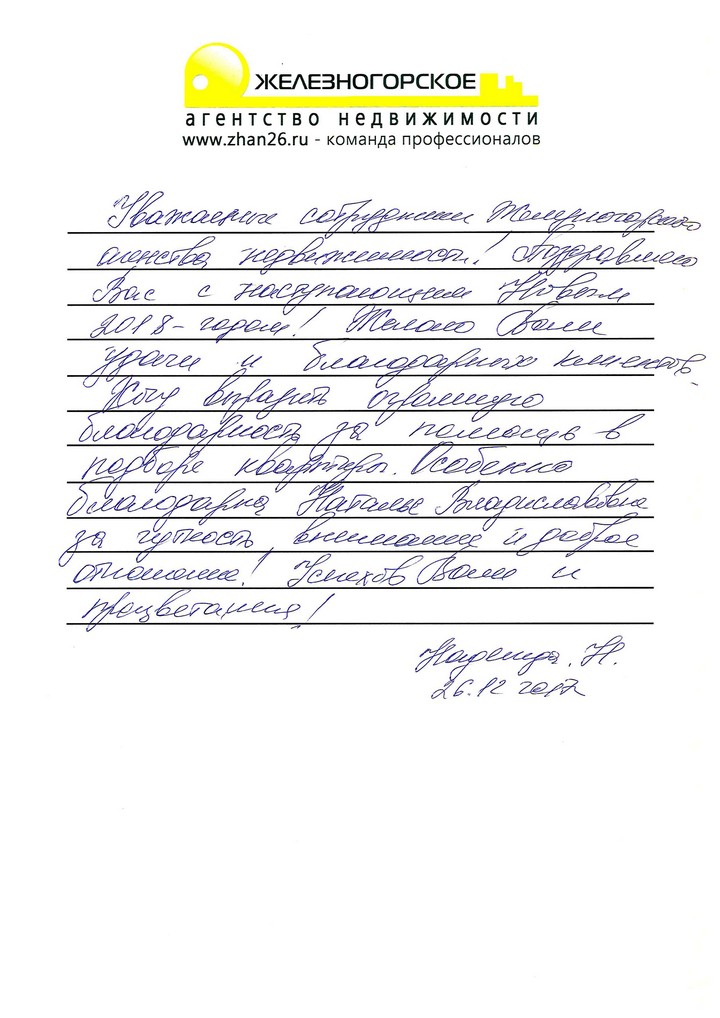 ЖЕЛЕЗНОГОРСКОЕ
агентство недвижимости
www.zhan26.ru - команда профессионалов
Уважаемые сотрудники Железногорского
агенства недвижимости! Поздравляю
Вас с наступающим Новым
2018-годом! Желаю Вам
удачи и благодарных клиентов.
Хочу выразить огромную
благодарность за помощь в
подборе квартиры. Особенно
благодарна Наталье Владиславовне
за чуткость, внимание и доброе
отношение! Успехов Вам и
процветания!
Надежда. Н.
26.12 2017